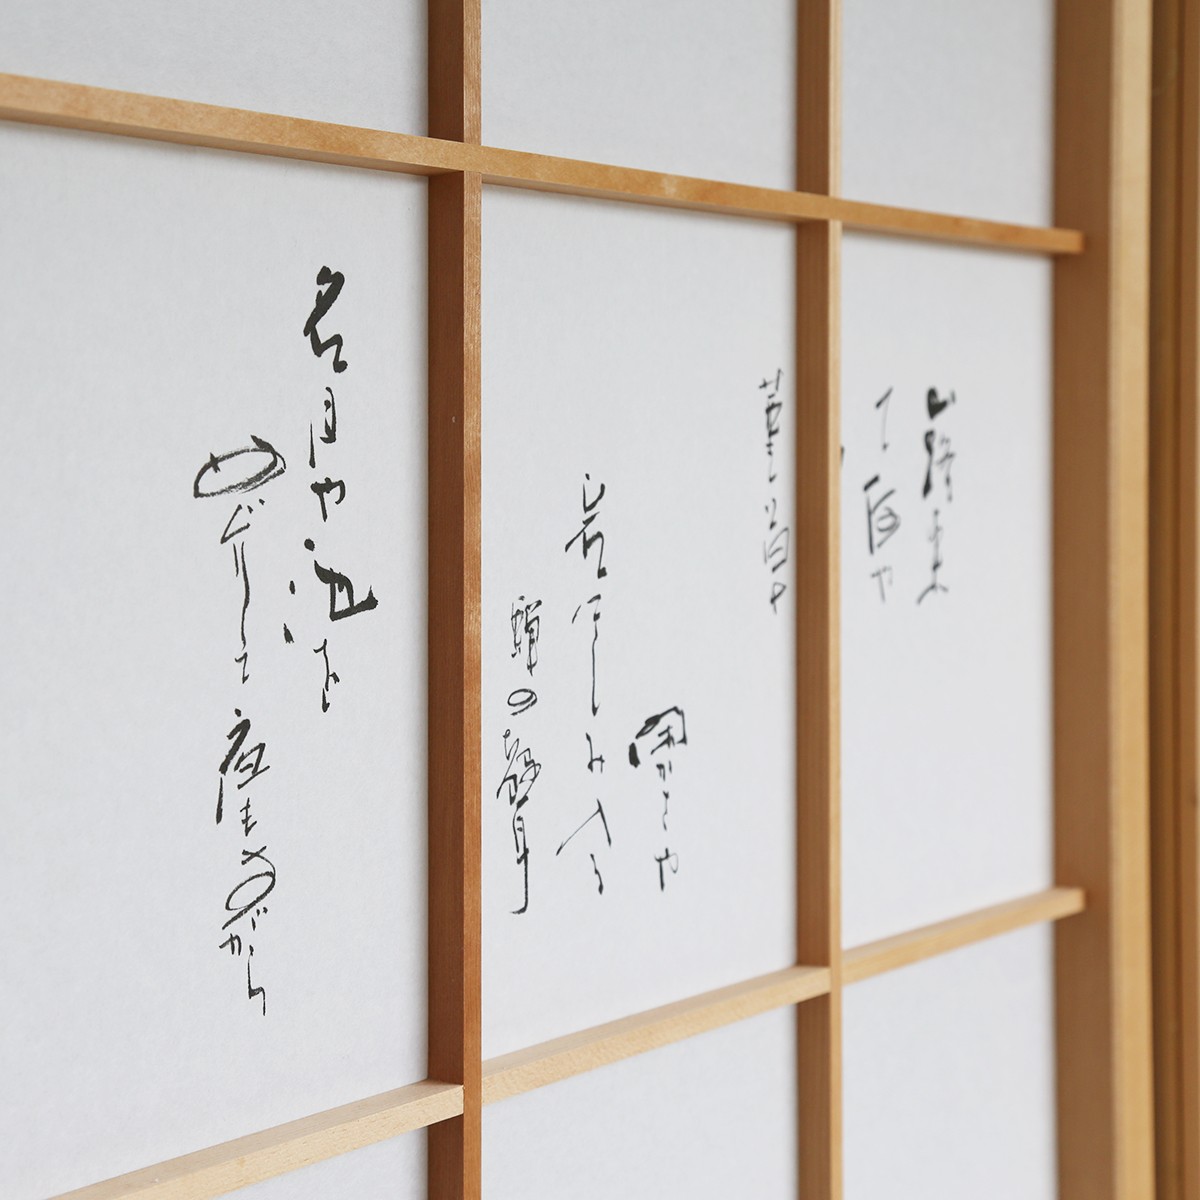 山路来
て何や
菫草
閑かさや
岩にしみ入る
蝉の聲
名月や池を
めぐりて夜もすがら